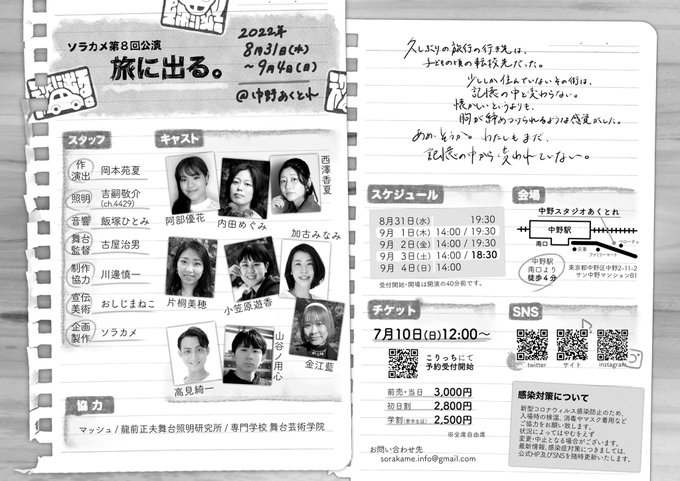 ソラカメ第8回公演
旅に出る。
2022年
8月31日(水)
～9月4日(日)
@中野あくとれ
スタッフ
作・演出 岡本苑夏
照明 吉嗣敬介
(ch.4429)
音響 飯塚ひとみ
舞台監督 古屋治男
制作協力 川邊慎一
宣伝美術 おしじまねこ
企画製作 ソラカメ
キャスト
阿部優花
内田めぐみ
西澤香夏
片桐美穂
小笠原遊香
加古みなみ
高見綺一
山谷ノ用心
金江藍
協力
マッシュ/龍前正夫舞台照明研究所/専門学校 舞台芸術学院
久しぶりの旅行の行き先は、
子どもの頃の転校先だった。
少ししか住んでいないその街は、
記憶の中と変わらない。
懐かしいというよりも、
胸が締めつけられるような感覚がした。
あぁ、そうか。わたしもまだ、
記憶の中から変われていない。
スケジュール
8月31日(水) 19:30
9月 1日(木) 14:00 / 19:30
9月 2日(金) 14:00 / 19:30
9月 3日(土) 14:00 / 18:30
9月 4日(日) 14:00
受付開始・開場は開演の40分前です。
会場
中野スタジオあくとれ
中野駅
南口
ベローチェ
ファミリーマート
中野駅
南口より
徒歩4分
東京都中野区中野2-11-2
サン中野マンションB1
チケット
7月10日(日)12:00～
こりっちにて
予約受付開始
前売・当日 3,000円
初日割 2,800円
学割(要学生証) 2,500円
※全席自由席
お問い合わせ先
sorakame.info@gmail.com
SNS
twitter
サイト
instagram
感染対策について
新型コロナウィルス感染防止のため、
入場時の検温、消毒やマスク着用など
ご協力をお願い致します。
状況によってはやむをえず
変更・中止となる場合がございます。
最新情報、感染症対策につきましては、
公式HP及びSNSを随時更新いたします。